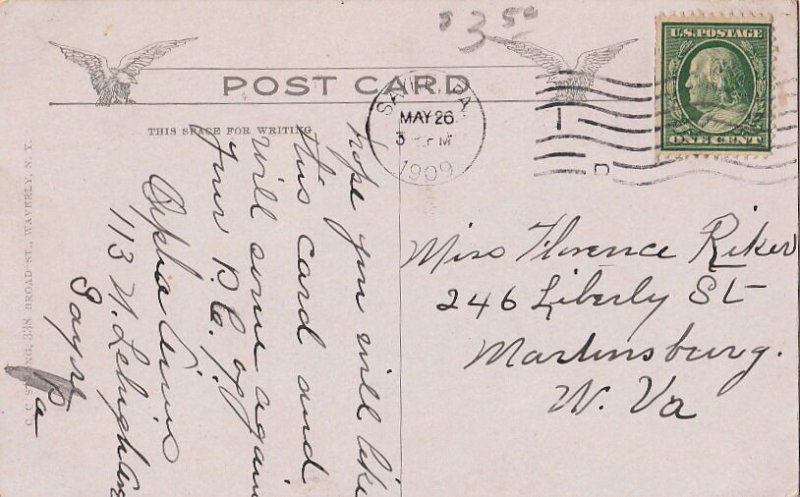 $3.50
POST CARD
U.S. POSTAGE
ONE CENT
PA.
MAY 26
3 M
1909
THIS SPACE FOR WRITING
hope you will like
this card and
will some again
Your P.C. of
Orpha
113 N. Lehigh Ave
Sayre
Pa
Miss Florence Riker
246 Liberly St
Martinsburg.
W. Va
338 BROAD ST., WAVERLY, N.Y.